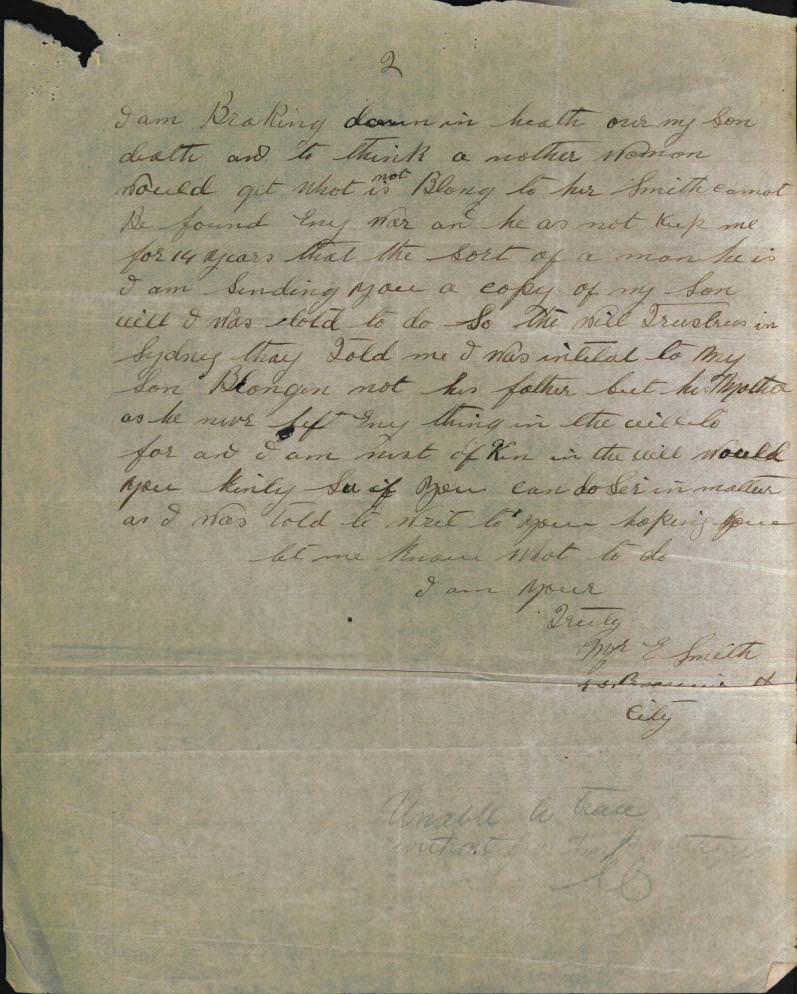 2
I am Braking down in heath over my Son
death and to think a nother woman
would get what is not Blong to her Smith cannot
Be found Eny war and he as not Kep me
for 14 years that the sort of a man he is
I am Sending you a copy of my Son
will I was told to do So the will Trustees in
Sydney thay Told me I was intitlat to my
Son Blongen not his father but his Mother
as he nevr left Eny thing in the will to
for and I am nixt of Kin in the will would
you kinly See if you can do in matter
as I was told to writ to you hoping you
let me know what to do
I am your
Truly
Mrs E Smith
St
City
Unable to trace
without further particulars